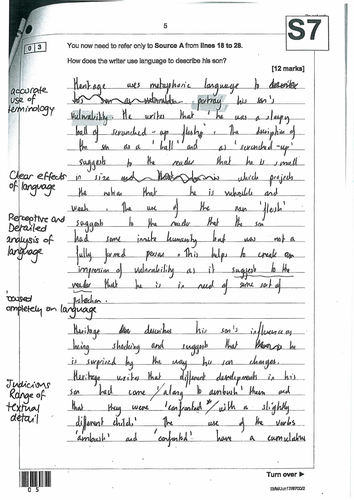 5
S7
0 3
You now need to refer only to Source A from lines 18 to 28.
How does the writer use language to describe his son?
[12 marks]
accurate use of terminology
Heritage uses metaphoric language to describe
his son as vulnerable portray his son's
vulnerability. He writes that 'he was a sleepy
ball of scrunched-up flesh'. The description of
the son as a 'ball' and as 'scrunched-up'
suggests to the reader that he is small
Clear effects of language
in size and which projects
the notion that he is vulnerable and
weak. The use of the noun 'flesh'
Perceptive and Detailed analysis of language
suggests to the reader that the son
had some innate humanity but was not a
fully formed person. This helps to create an
impression of vulnerability as it suggests to the
reader that he is in need of some sort of
protection.
focused completely on language
Heritage describes his son's influence as
being shocking and suggests that he
is surprised by the way his son changes.
Judicious Range of textual detail
Heritage writes that different developments in his
son had come 'along to ambush' them and
that they were 'confronted' 'with a slightly
different child'. The use of the verbs
'ambush' and 'confronted' have a cumulative
Turn over ►
0 5